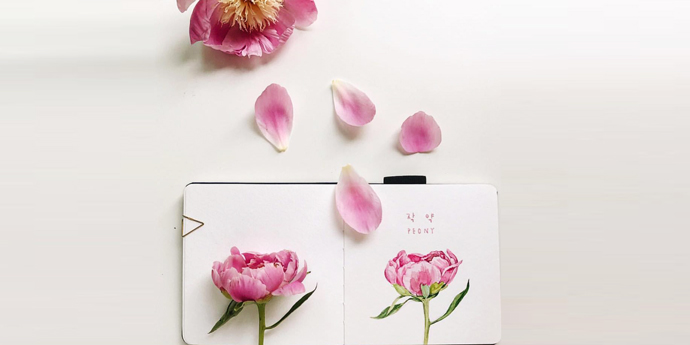 작약
PEONY